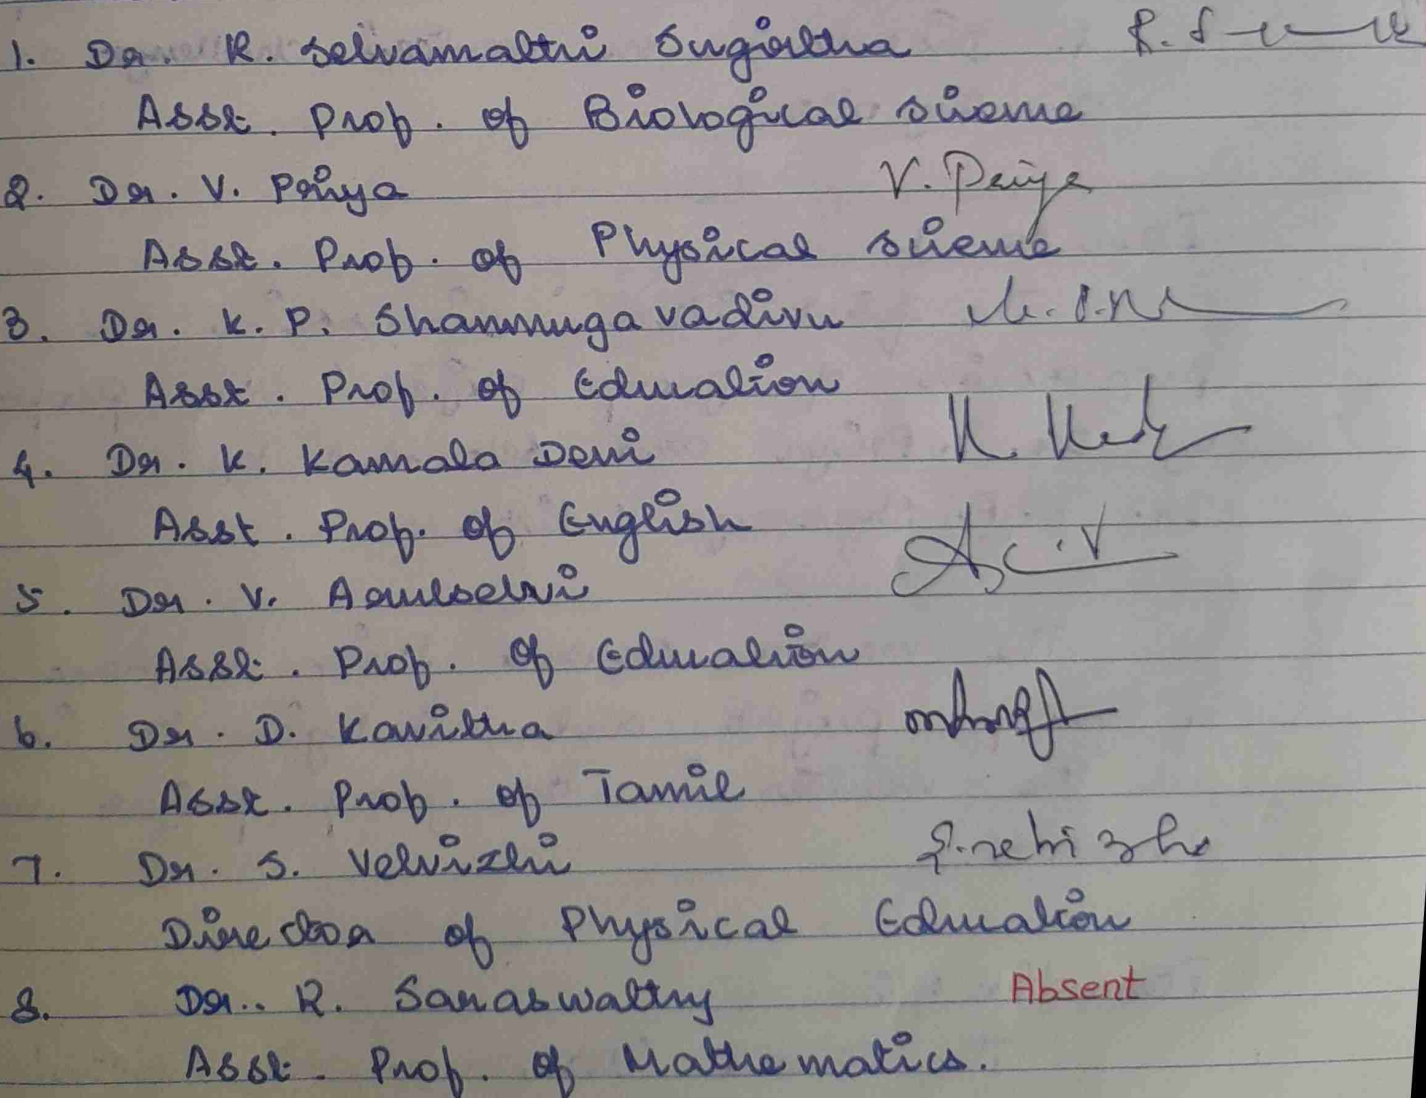 1. Dr. R. Selvamathi Sugirtha
Asst. Prof. of Biological Science
2. Dr. V. Priya V. Priya
Asst. Prof. of Physical Science
3. Dr. K. P. Shanmuga vadivu
Asst. Prof. of Education
4. Dr. K. Kamala Devi
Asst. Prof. of English
5. Dr. V. Arulselvi
Asst. Prof. of Education
6. Dr. D. Kavitha
Asst. Prof. of Tamil
7. Dr. S. Velvizhi
Director of Physical Education
8. Dr.. R. Saraswathy Absent
Asst. Prof. of Mathematics.